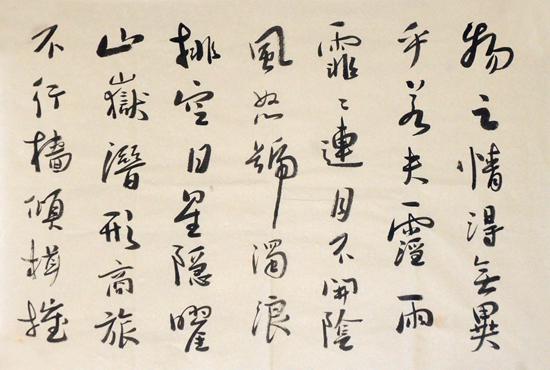 物之情得無異
乎若夫霪雨
霏〻連月不開陰
風怒號濁浪
排空日星隱曜
山嶽潛形商旅
不行檣傾楫摧